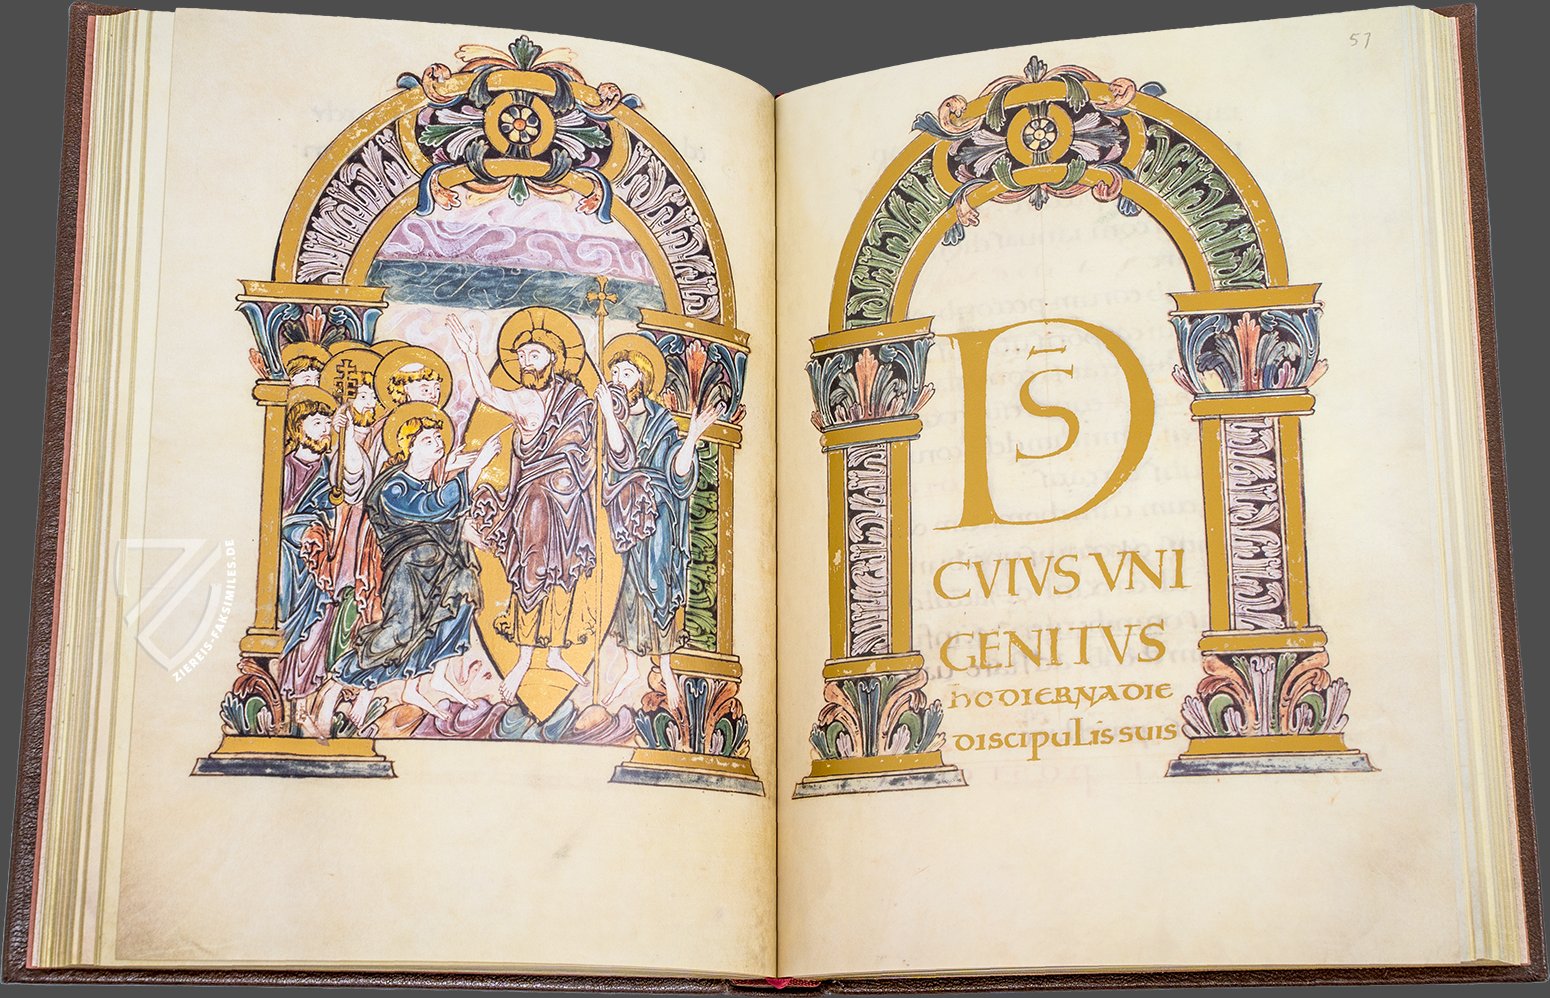 57
D S̄
CVIVS VNI
GENITVS
hODIERNA DIE
DISCIPULIS SUIS
ZIEREIS-FAKSIMILES.DE